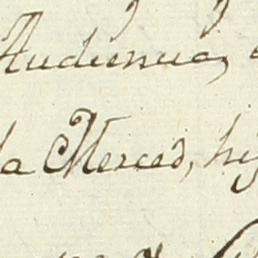 Audiencia,
la Merced, hi